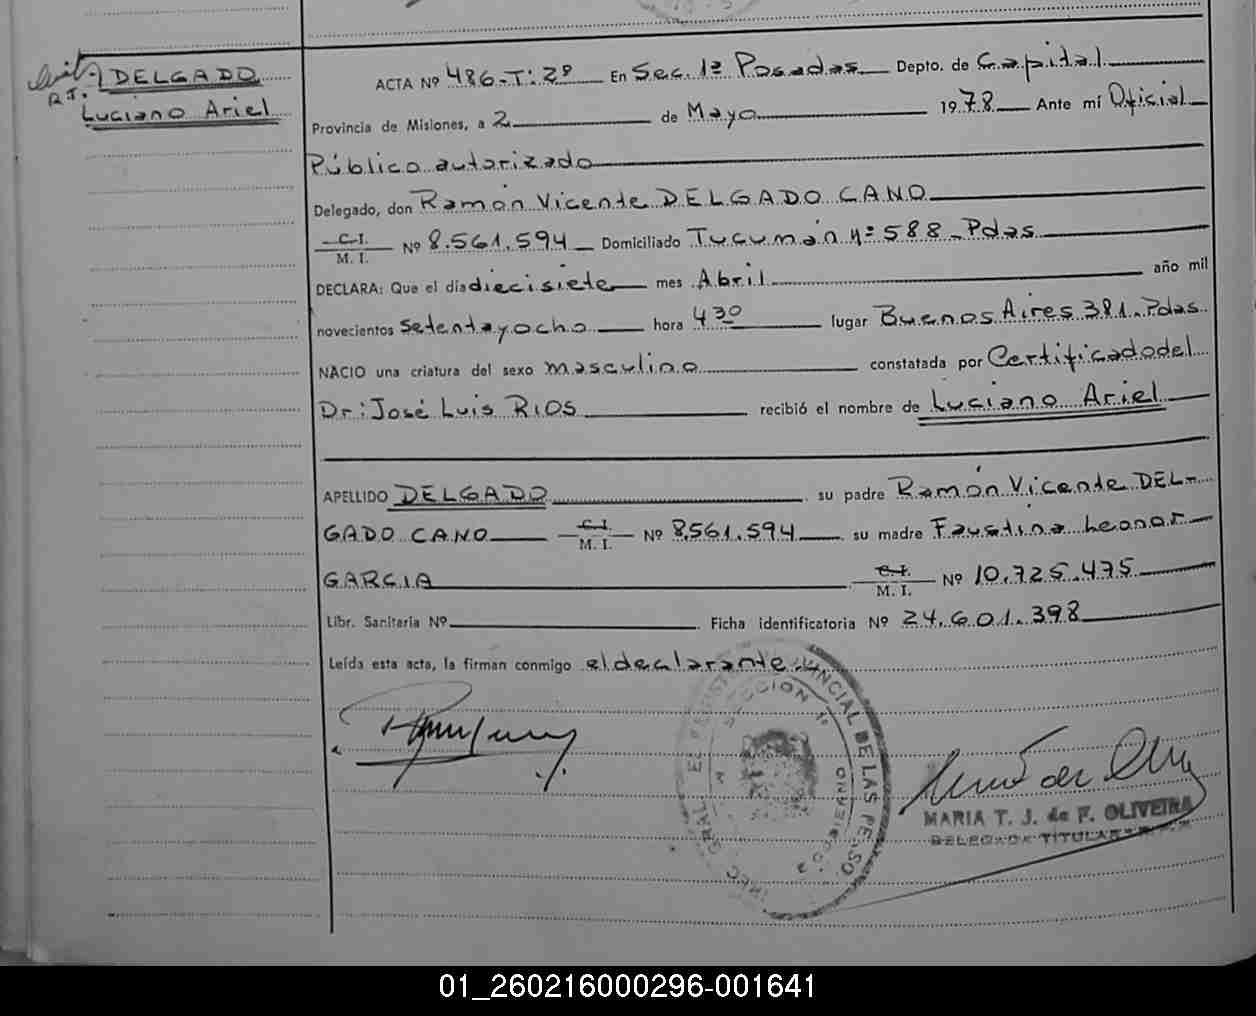 DELGADO
Luciano Ariel
ACTA Nº 486-T:2º En Sec. 1ª Posadas Depto. de Capital
Provincia de Misiones, a 2 de Mayo 1978 Ante mí Oficial
Público autorizado
Delegado, don Ramón Vicente DELGADO CANO
C.I. M. I. Nº 8.561.594 Domiciliado Tucumán Nº 588 - Pdas
DECLARA: Que el día diecisiete mes Abril año mil
novecientos setentayocho hora 4 30 lugar Buenos Aires 381. Pdas.
NACIO una criatura del sexo masculino constatada por Certificado del
Dr: José Luis RIOS recibió el nombre de Luciano Ariel
APELLIDO DELGADO su padre Ramón Vicente DEL-
GADO CANO C.I. M. I. Nº 8.561.594 su madre Faustina Leonor
GARCIA C.I. M. I. Nº 10.725.475
Libr. Sanitaria Nº Ficha identificatoria Nº 24.601.398
Leída esta acta, la firman conmigo el declarante.
PROVINCIAL DE LAS PERSO
SECCION 1ª
MARIA T. J. de F. OLIVEIRA
DELEGADA TITULAR
01_260216000296-001641